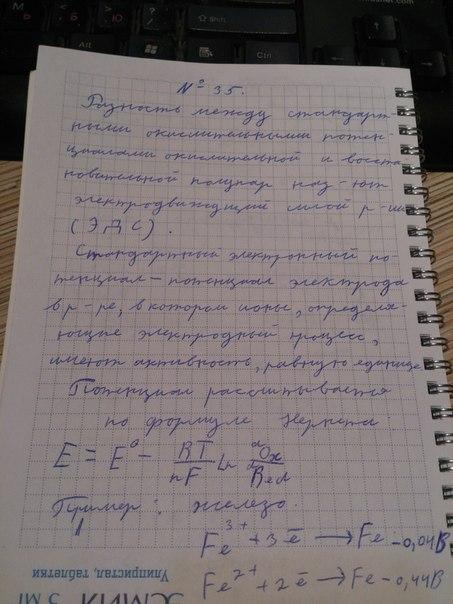 № 35.
Разность между стандарт
ными окислительными потен-
циалами окислительной и восста
новительной полупар наз-ют
электродвижущий силой р-ии
(ЭДС).
Стандартный электронный по-
тенциал – потенциал электрода
в р-ре, в котором ионы, определя-
ющие электродный процесс,
имеют активность, равную единице
Потенциал рассчитывается
по формуле Нернста
E = E° - RT/nF ln aOx/aRed
Пример: железо.
Fe³⁺ + 3ē → Fe -0,04В
Fe²⁺ + 2ē → Fe -0,44В
Улипристал, таблетки
ЭСМИЯ 5 МГ
Alt
Ctrl
Shift